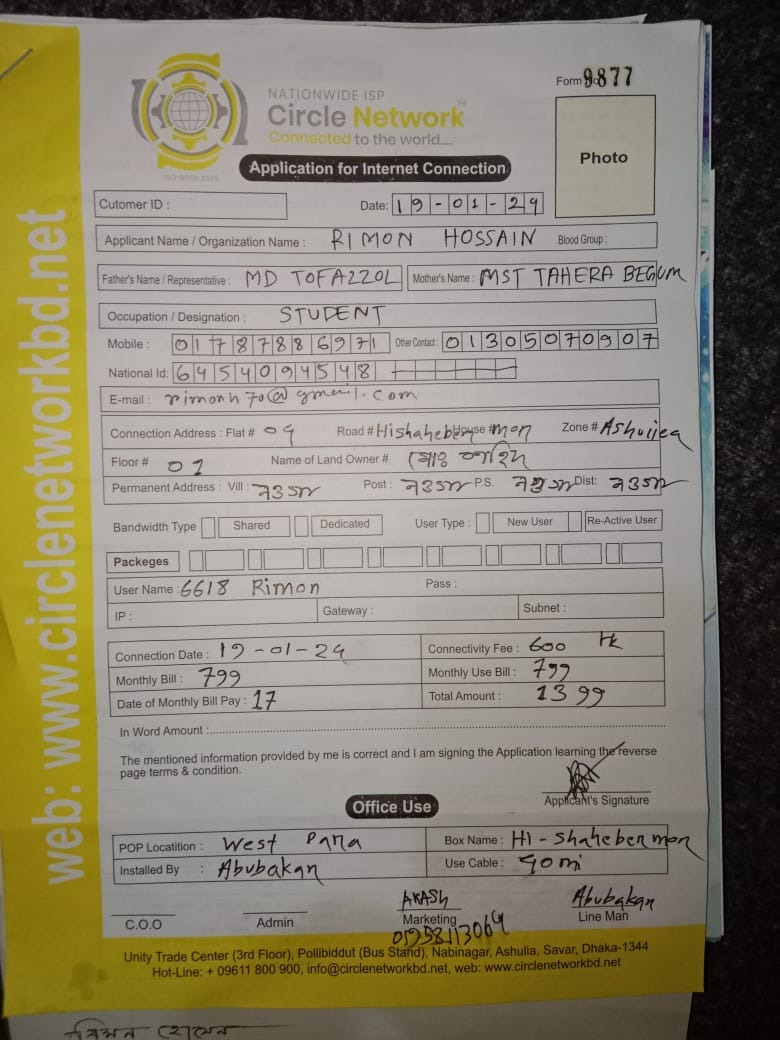 Form No 9877
NATIONWIDE ISP
Circle Network
Connected to the world....
ISO 9001:2015
Application for Internet Connection
Photo
Cutomer ID :
Date: 19-01-24
Applicant Name / Organization Name : RIMON HOSSAIN Blood Group :
Father's Name / Representative : MD TOFAZZOL Mother's Name : MST TAHERA BEGUM
Occupation / Designation : STUDENT
Mobile : 01787886971 Other Contact : 01305070907
National Id: 6454094548
E-mail : rimonh70@gmail.com
Connection Address : Flat # 04 Road # Hishaheber House # mon Zone # Ashuliea
Floor # 01 Name of Land Owner # মোঃ
Permanent Address : Vill : Post : P.S. Dist:
Bandwidth Type Shared Dedicated User Type : New User Re-Active User
Packeges
User Name : 6618 Rimon Pass :
IP : Gateway : Subnet :
Connection Date : 19-01-24 Connectivity Fee : 600 tk
Monthly Bill : 799 Monthly Use Bill : 799
Date of Monthly Bill Pay : 17 Total Amount : 1399
In Word Amount :
The mentioned information provided by me is correct and I am signing the Application learning the reverse
page terms & condition.
Applicant's Signature
Office Use
POP Locatition : West Para Box Name : Hi-Shaheber mon
Installed By : Abubakan Use Cable : 90 mi
AKASH Abubakan
C.O.O Admin Marketing Line Man
01958113064
Unity Trade Center (3rd Floor), Pollibiddut (Bus Stand), Nabinagar, Ashulia, Savar, Dhaka-1344
Hot-Line: + 09611 800 900, info@circlenetworkbd.net, web: www.circlenetworkbd.net
web: www.circlenetworkbd.net
হোসেন